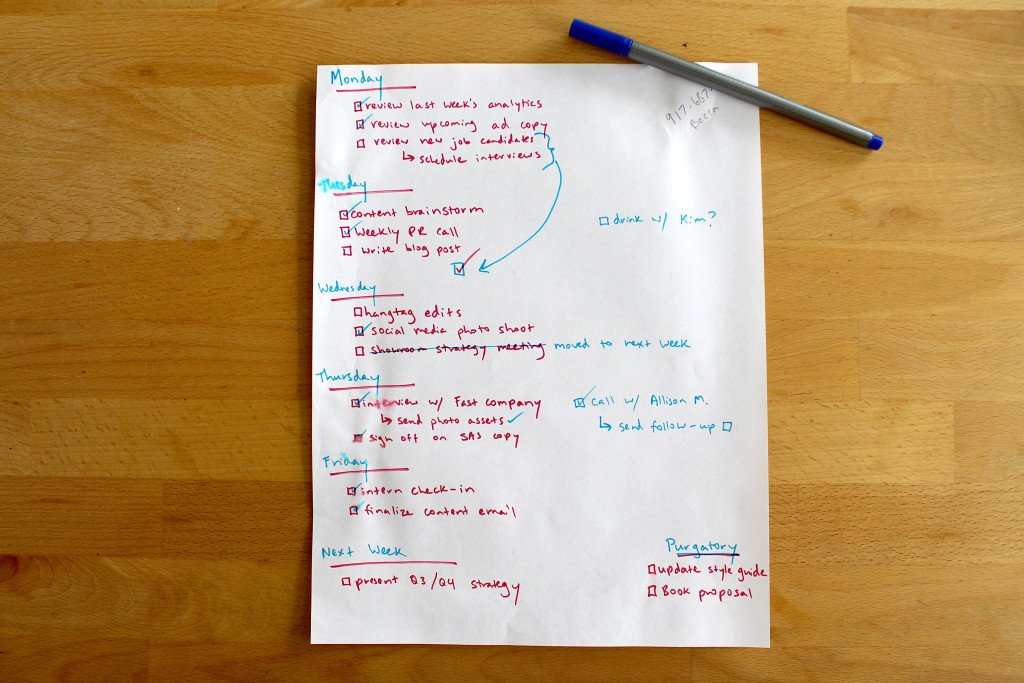 Monday
review last week's analytics
review upcoming ad copy
review new job candidates
schedule interviews
917-687-
Becca
Tuesday
content brainstorm
weekly PR call
write blog post
drink w/ Kim?
Wednesday
hangtag edits
social media photo shoot
showroom strategy meeting moved to next week
Thursday
interview w/ Fast company
send photo assets
sign off on SAS copy
call w/ Allison M.
send follow-up
Friday
intern check-in
finalize content email
Next Week
present Q3/Q4 strategy
Purgatory
update style guide
Book proposal